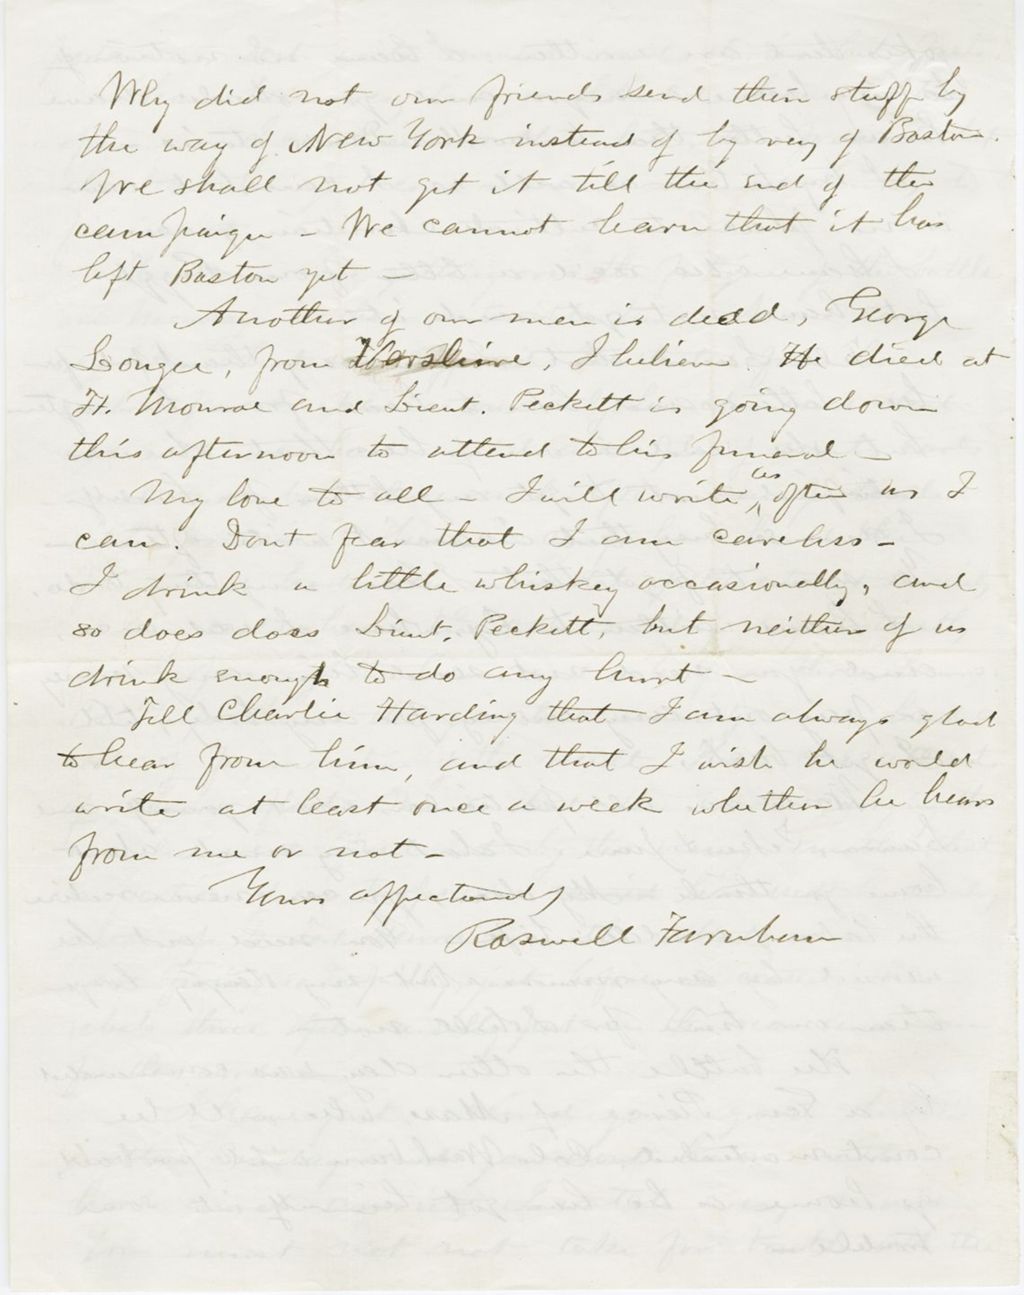 Why did not our friends send their stuff by
the way of New York instead of by way of Boston.
We shall not get it till the end of the
campaign – We cannot learn that it has
left Boston yet –
Another of our men is dead, George
Longee, from Vershire, I believe. He died at
Ft. Monroe and Lieut. Peckett is going down
this afternoon to attend to his funeral –
My love to all – I will write as often as I
can. Dont fear that I am careless –
I drink a little whiskey occasionally, and
so does does Lieut. Peckett, but neither of us
drink enough to do any hurt –
Tell Charlie Harding that I am always glad
to hear from him, and that I wish he would
write at least once a week whether he hears
from me or not –
Yours affectionately
Roswell Farnham